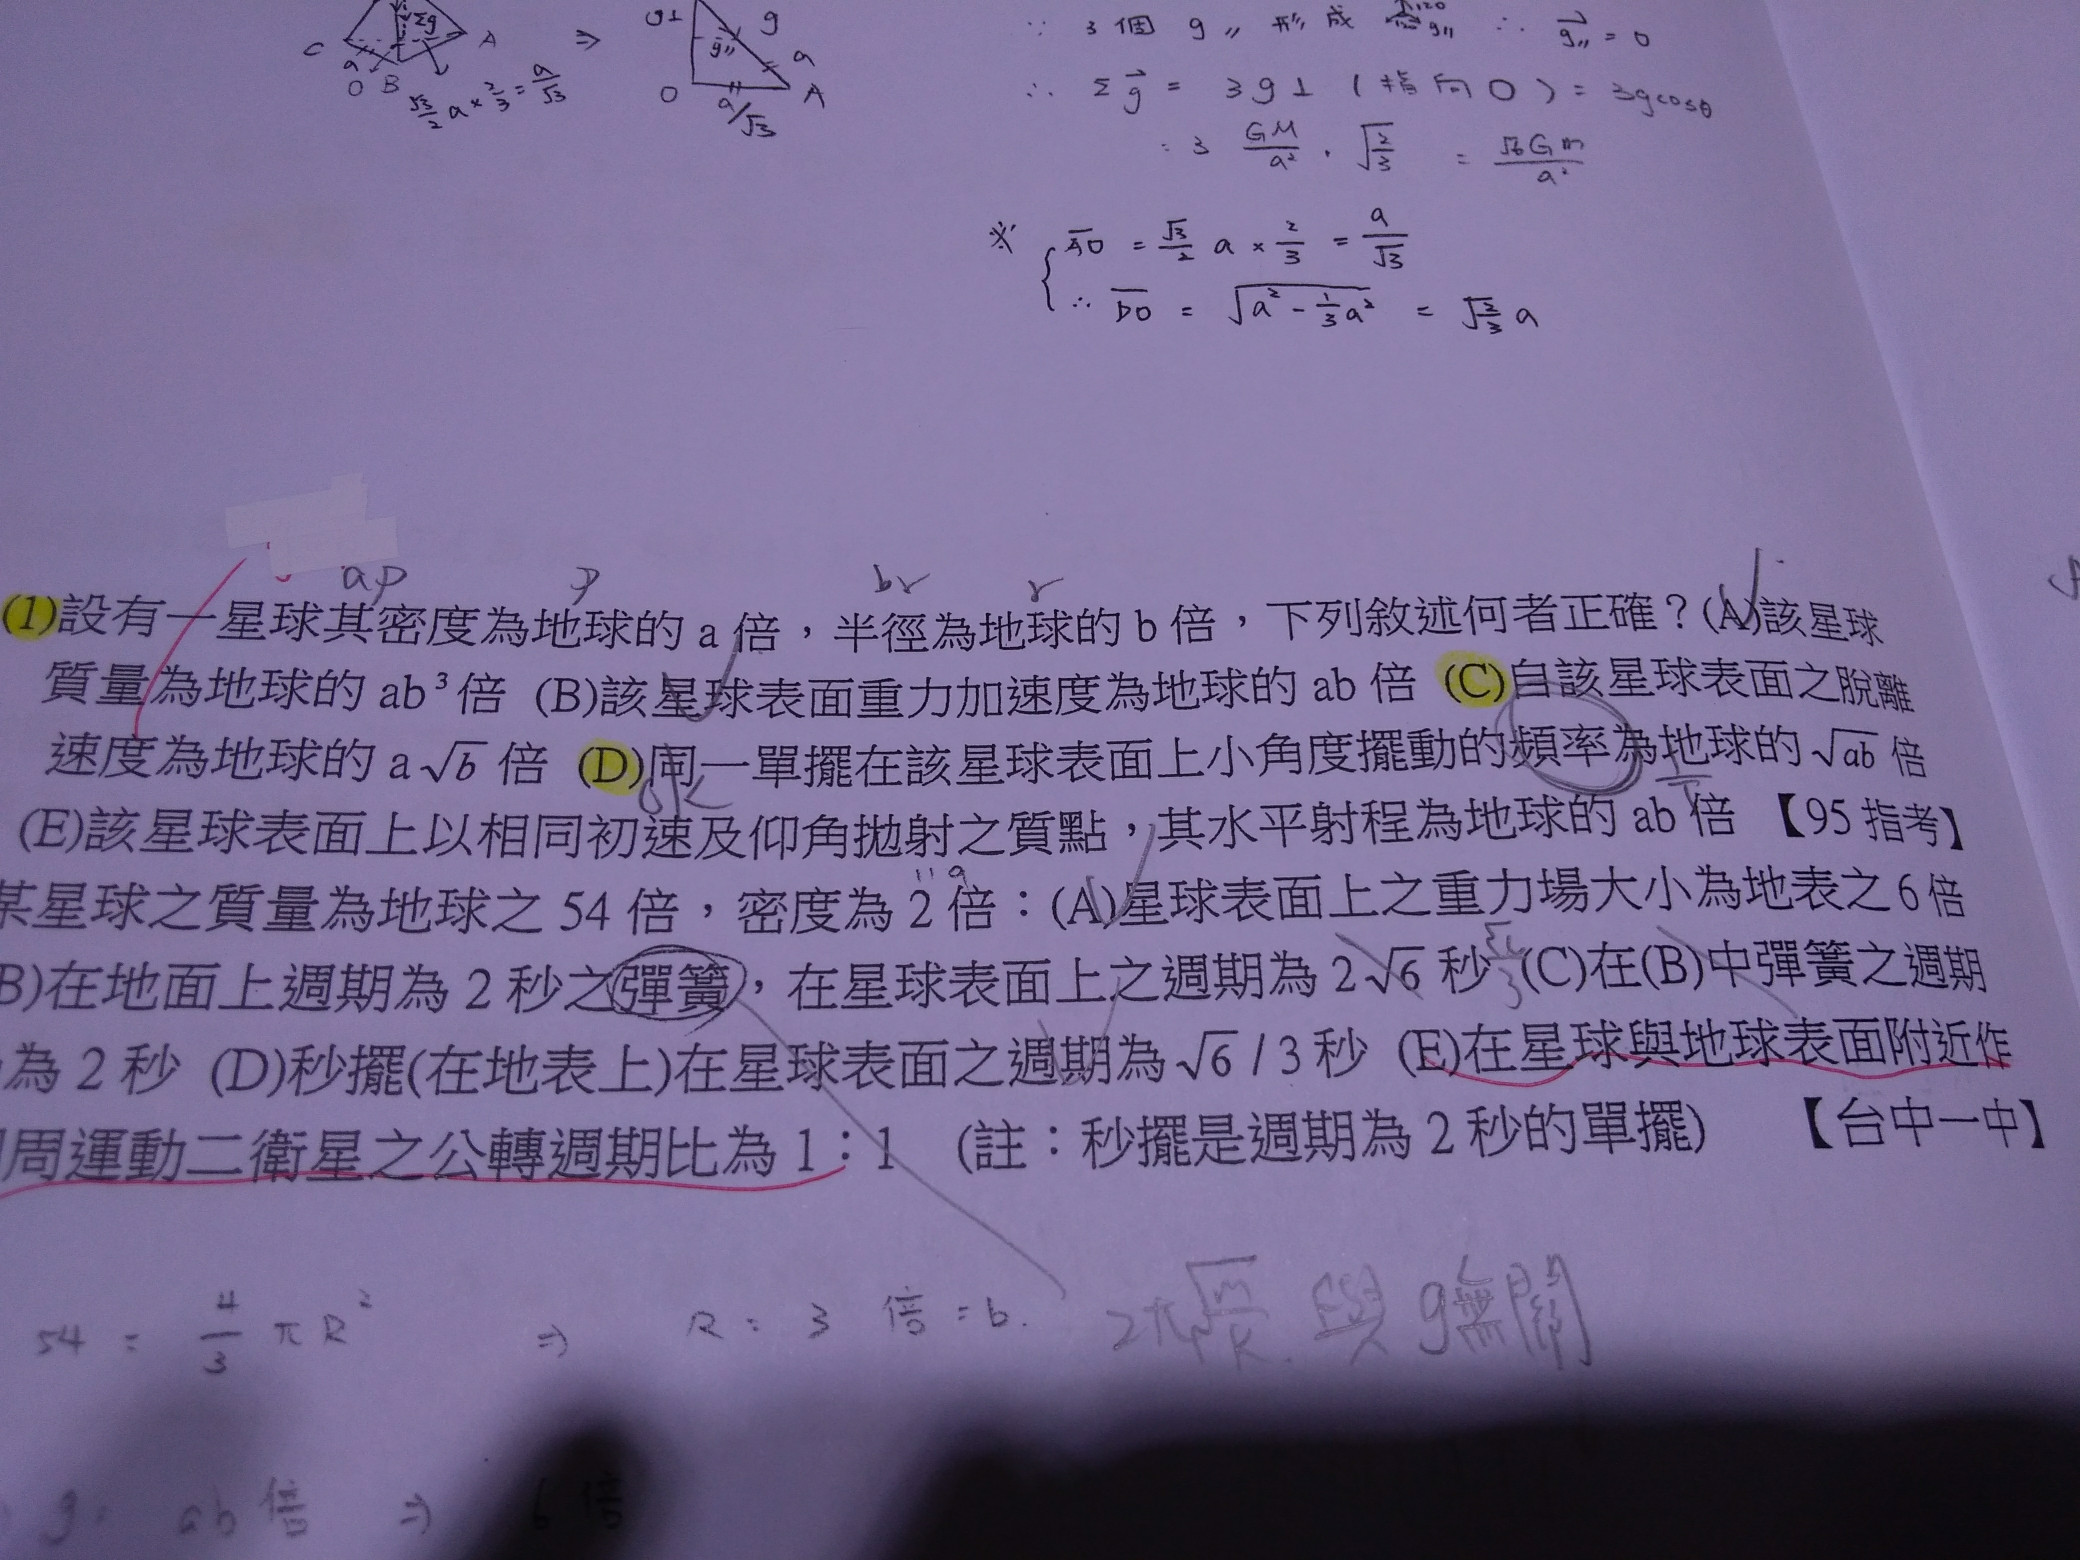 C A
a O B
√3/2 a × 2/3 = a/√3
⇒
g⊥ g
g// a
O A
a/√3
∵ 3個 g// 形成 120 g// ∴ g// = 0
∴ Σg = 3g⊥ (指向O) = 3gcosθ
= 3 GM/a² · √2/3 = √6Gm/a²
※ AO = √3/2 a × 2/3 = a/√3
∴ DO = √a² - 1/3a² = √2/3 a
aρ ρ br r
(1)設有一星球其密度為地球的 a 倍,半徑為地球的 b 倍,下列敘述何者正確?(A)該星球
質量為地球的 ab³ 倍 (B)該星球表面重力加速度為地球的 ab 倍 (C)自該星球表面之脫離
速度為地球的 a√b 倍 (D)同一單擺在該星球表面上小角度擺動的頻率為地球的 √ab 倍
OK 1/T
(E)該星球表面上以相同初速及仰角拋射之質點,其水平射程為地球的 ab 倍 【95 指考】
某星球之質量為地球之 54 倍,密度為 2 倍:(A)星球表面上之重力場大小為地表之 6 倍
B)在地面上週期為 2 秒之彈簧,在星球表面上之週期為 2√6 秒 (C)在(B)中彈簧之週期
為 2 秒 (D)秒擺(在地表上)在星球表面之週期為 √6 / 3 秒 (E)在星球與地球表面附近作
周運動二衛星之公轉週期比為 1:1 (註:秒擺是週期為 2 秒的單擺) 【台中一中】
54 = 4/3 π R² ⇒ R = 3 倍 = b.
2π√m/k. 與 g 無關
g: ab 倍 ⇒ 6 倍